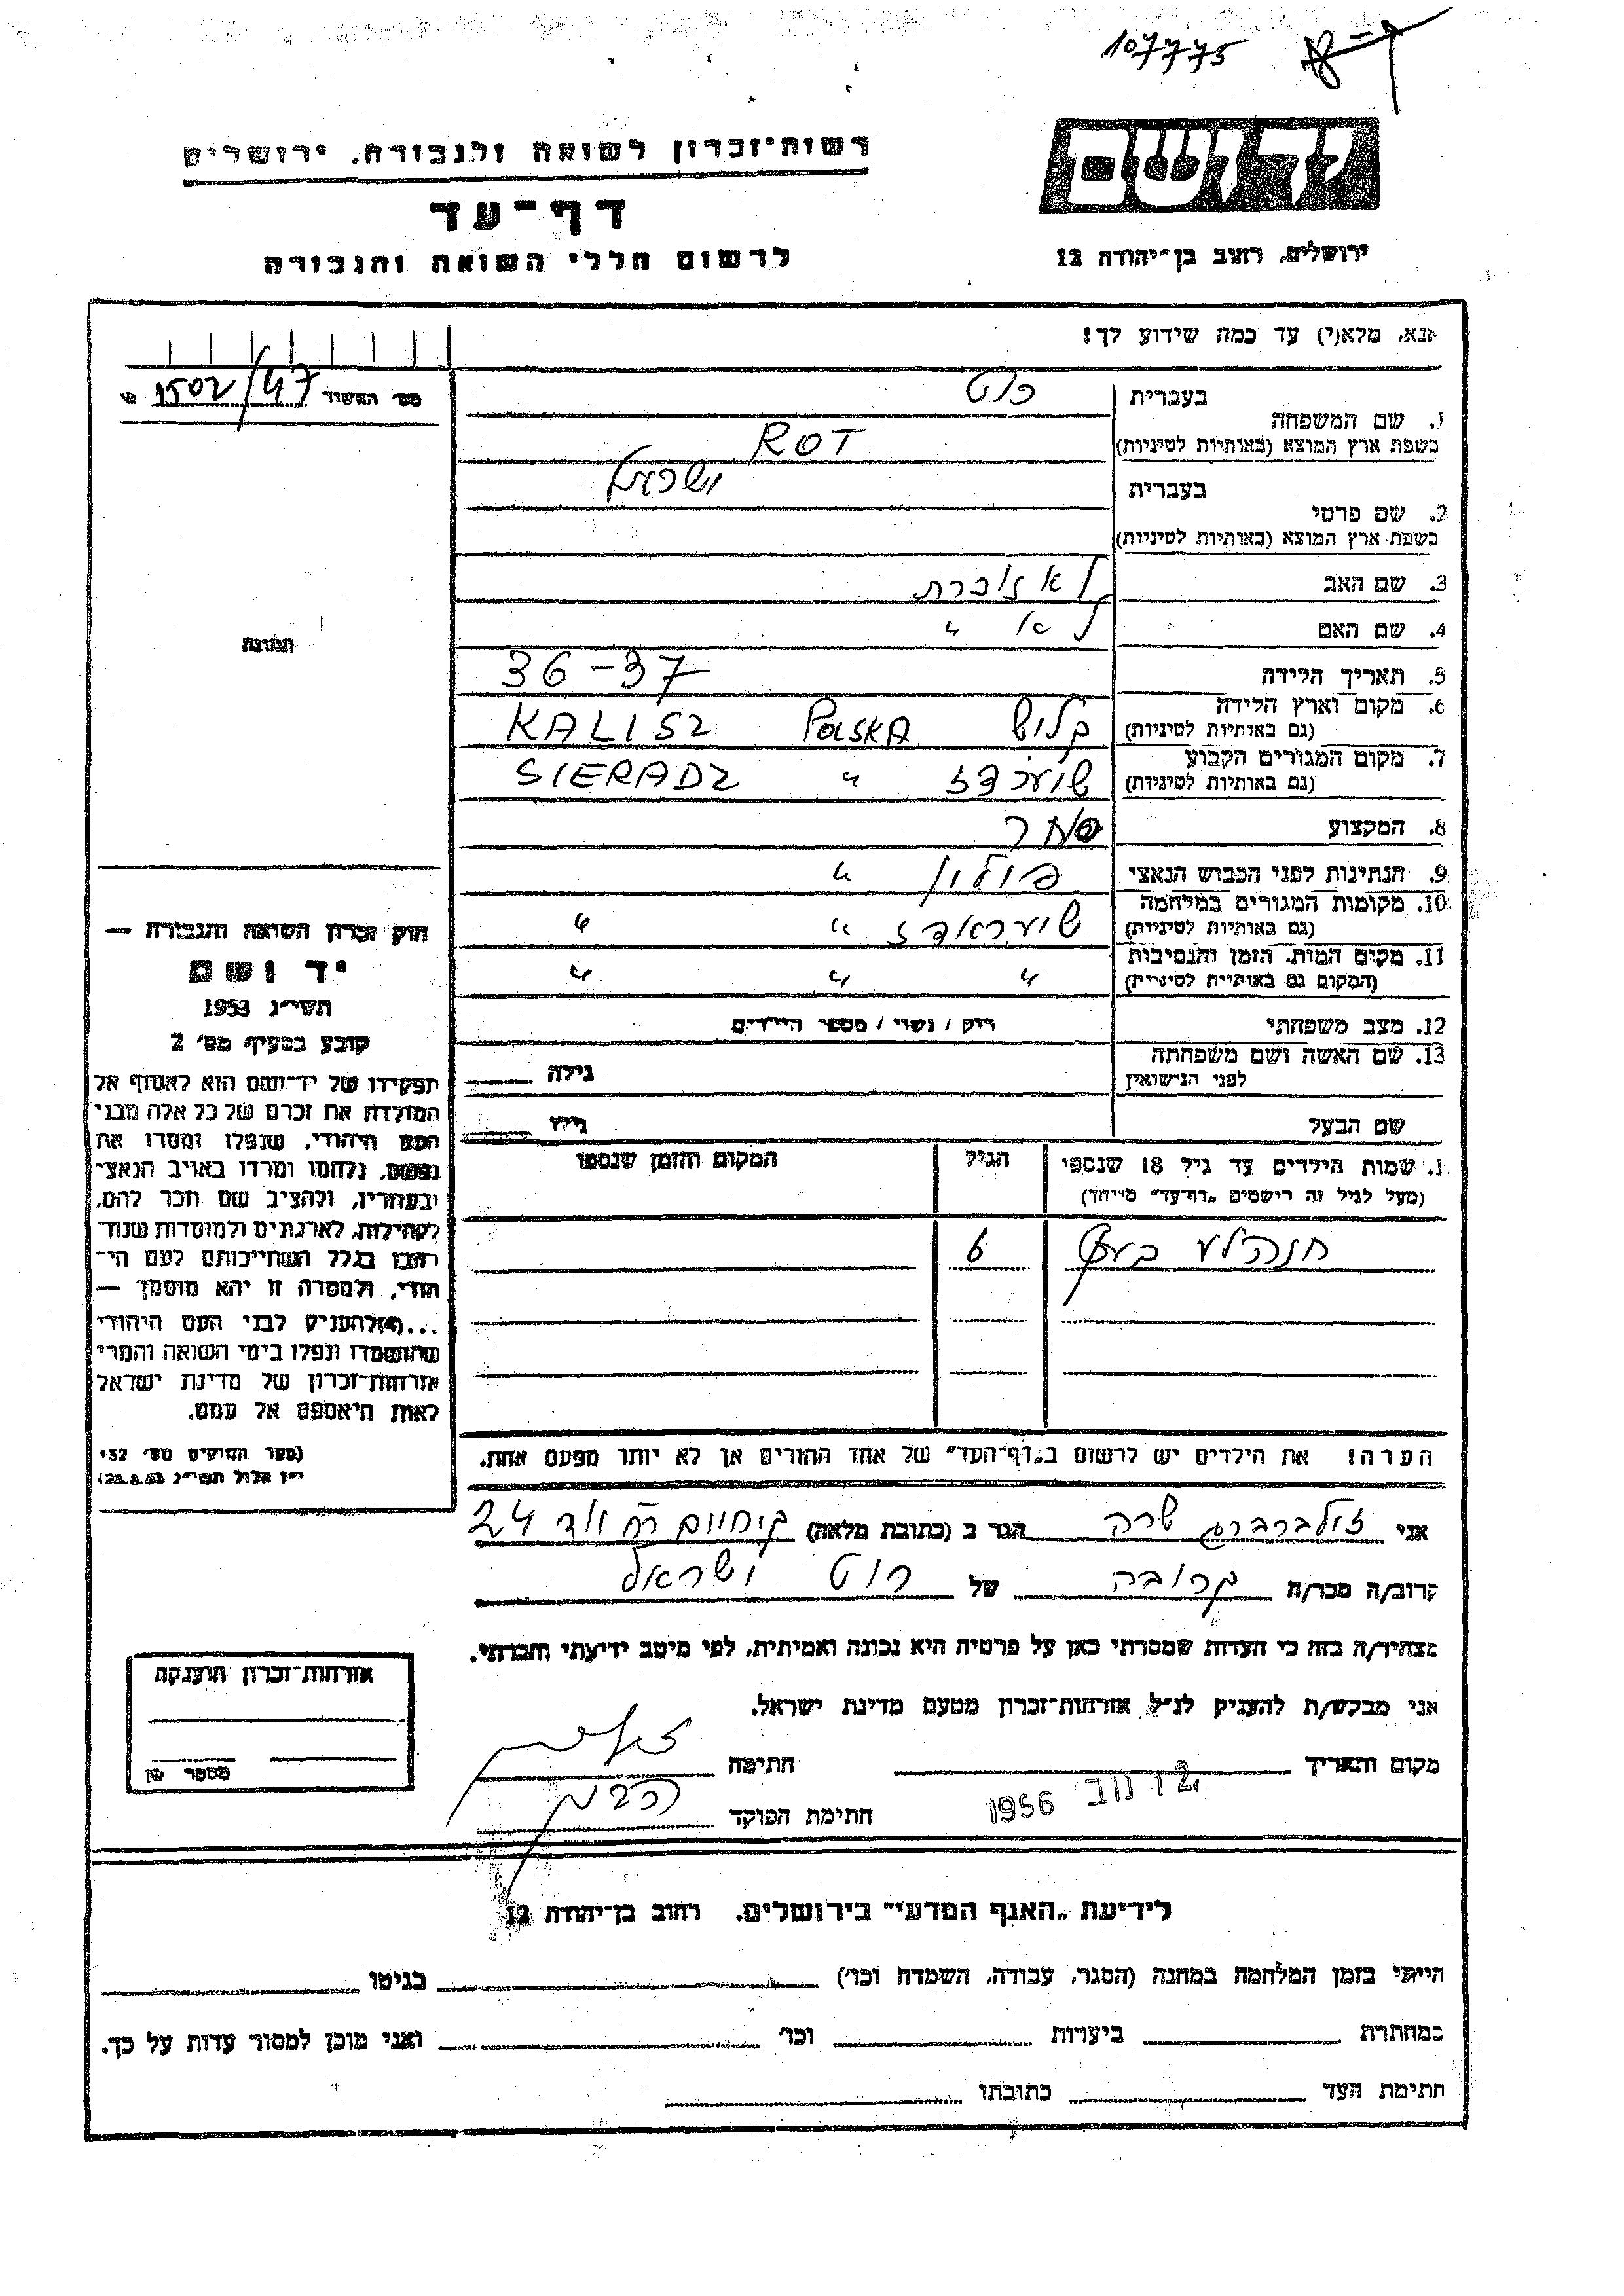 107775
רשות־זכרון לשואה ולגבורה, ירושלים
דף־עד
לרשום חללי השואה והגבורה
יד ושם
ירושלים, רחוב בן־יהודה 12
אנא, מלא(י) עד כמה שידוע לך!
מס׳ האשיר 1502/47
1. שם המשפחה
בעברית רוט
בשפת ארץ המוצא (באותיות לטיניות) ROT
2. שם פרטי
בעברית ישראל
בשפת ארץ המוצא (באותיות לטיניות)
3. שם האב לא זוכרת
4. שם האם לא "
5. תאריך הלידה 36-37
6. מקום וארץ הלידה
(גם באותיות לטיניות) קליש POLSKA KALISZ
7. מקום המגורים הקבוע
(גם באותיות לטיניות) " SIERADZ
8. המקצוע סוחר
9. הנתינות לפני הכבוש הנאצי פולין "
10. מקומות המגורים במלחמה
(גם באותיות לטיניות) שיעראדז " "
11. מקום המות, הזמן והנסיבות
(המקום גם באותיות לטיניות) " " "
12. מצב משפחתי רוק / נשוי / מספר הילדים
13. שם האשה ושם משפחתה
לפני הנישואין גילה
שם הבעל גילו
תמונה
חוק זכרון השואה והגבורה —
יד ושם
תשי״ג 1953
קובע בסעיף מס׳ 2
תפקידו של יד־ושם הוא לאסוף אל
המולדת את זכרם של כל אלה מבני
העם היהודי, שנפלו ומסרו את
נפשם, נלחמו ומרדו באויב הנאצי
ובעוזריו, ולהציב שם וזכר להם,
לקהילות, לארגונים ולמוסדות שנחרבו
בגלל השתייכותם לעם היהודי,
ולמטרה זו יהא מוסמך —
...(4) להעניק לבני העם היהודי
שהושמדו ונפלו בימי השואה והמרי
אזרחות־זכרון של מדינת ישראל
לאות היאספם אל עמם.
(ספר החוקים מס׳ 132
י״ז אלול תשי״ג 28.8.53)
1. שמות הילדים עד גיל 18 שנספו הגיל המקום והזמן שנספו
(מעל לגיל זה רישמים „דף־עד״ מיוחד)
חנהלע 6
הערה! את הילדים יש לרשום ב„דף־העד״ של אחד ההורים אך לא יותר מפעם אחת.
אני זילברברג שרה הגר ב (כתובת מלאה) 24
קרוב/ה מכר/ה קרובה של רוט ישראל
מצהיר/ה בזה כי העדות שמסרתי כאן על פרטיה היא נכונה ואמיתית, לפי מיטב ידיעתי והכרתי.
אני מבקש/ת להעניק לנ״ל אזרחות־זכרון מטעם מדינת ישראל.
מקום והתאריך 2 נוב 1956 חתימה
חתימת הפוקד
אזרחות־זכרון הוענקה
מספר
לידיעת „האגף המדעי״ בירושלים, רחוב בן־יהודה 12
הייתי בזמן המלחמה במחנה (הסגר, עבודה, השמדה וכו׳) בגיטו
במחתרת ביערות וכו׳ ואני מוכן למסור עדות על כך.
חתימת העד כתובתו